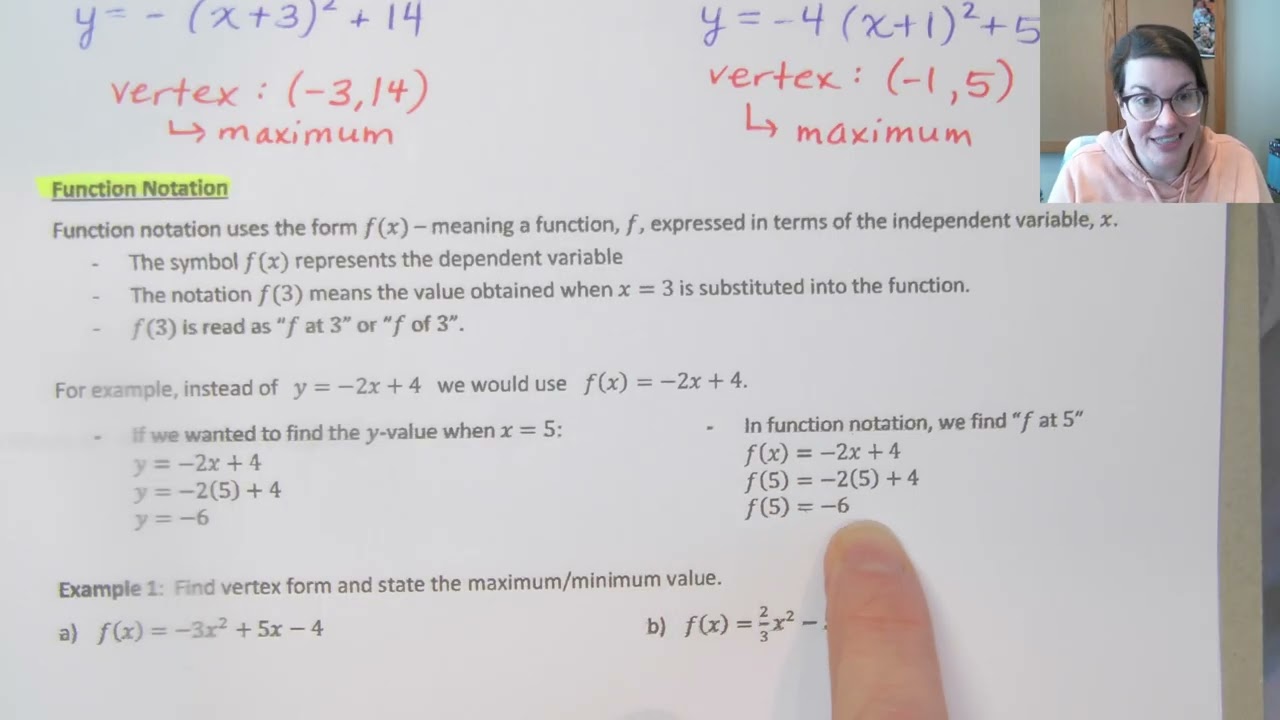 y = - (x+3)² + 14
y = -4 (x+1)² + 5
vertex : (-3, 14)
vertex : (-1, 5)
↳ maximum
↳ maximum
Function Notation
Function notation uses the form f(x) – meaning a function, f, expressed in terms of the independent variable, x.
- The symbol f(x) represents the dependent variable
- The notation f(3) means the value obtained when x = 3 is substituted into the function.
- f(3) is read as "f at 3" or "f of 3".
For example, instead of y = −2x + 4 we would use f(x) = −2x + 4.
- If we wanted to find the y-value when x = 5:
y = −2x + 4
y = −2(5) + 4
y = −6
- In function notation, we find "f at 5"
f(x) = −2x + 4
f(5) = −2(5) + 4
f(5) = −6
Example 1: Find vertex form and state the maximum/minimum value.
a) f(x) = −3x² + 5x − 4
b) f(x) = 2/3 x² −